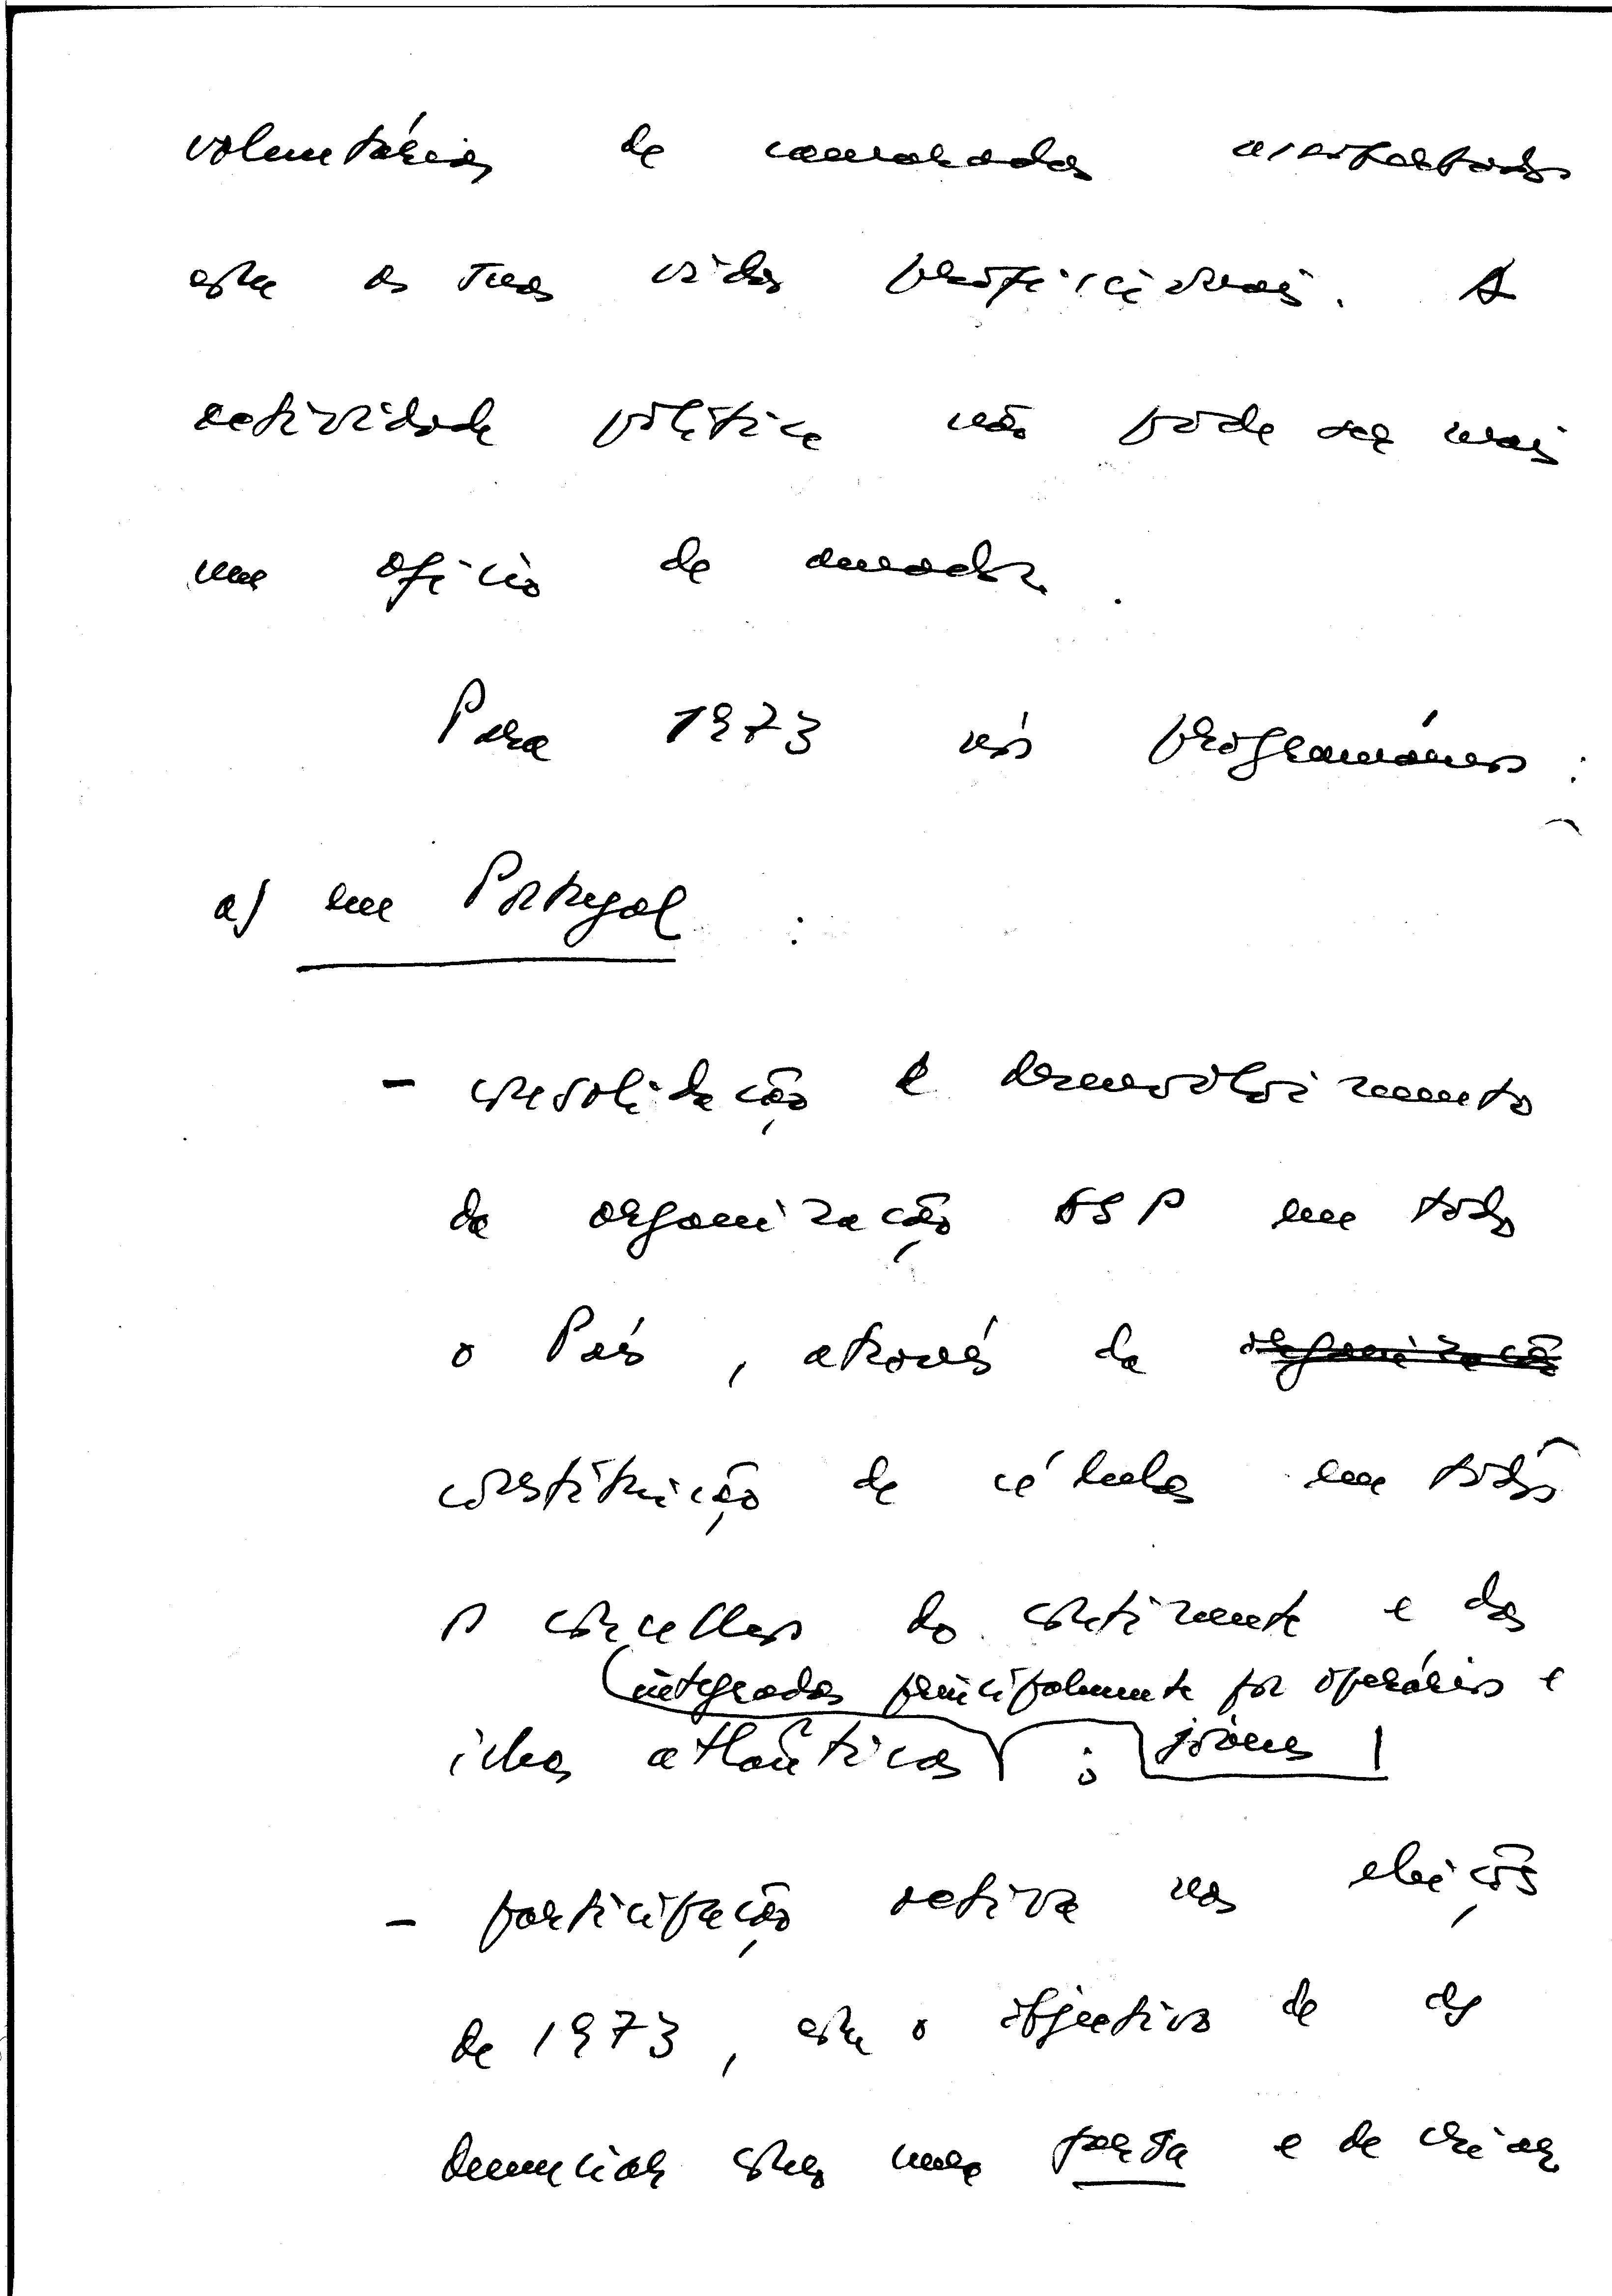 voluntários de camaradas assoberbados
com as suas vidas profissionais. A
actividade política não pode ser mais
um ofício de amador.
Para 1973 nós programámos :
a) em Portugal :
- consolidação e desenvolvimento
da organização ASP em todo
o País, através da organização
constituição de células em todos
os concelhos do continente e das
integradas principalmente por operários e
ilhas atlânticas ; jovens
- participação activa nas eleições
de 1973, com o objectivo de as
denunciar como uma farsa e de criar